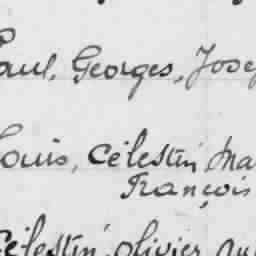 Paul, Georges, Jose
Louis, Célestin, Ma
François
Célestin, olivier, au